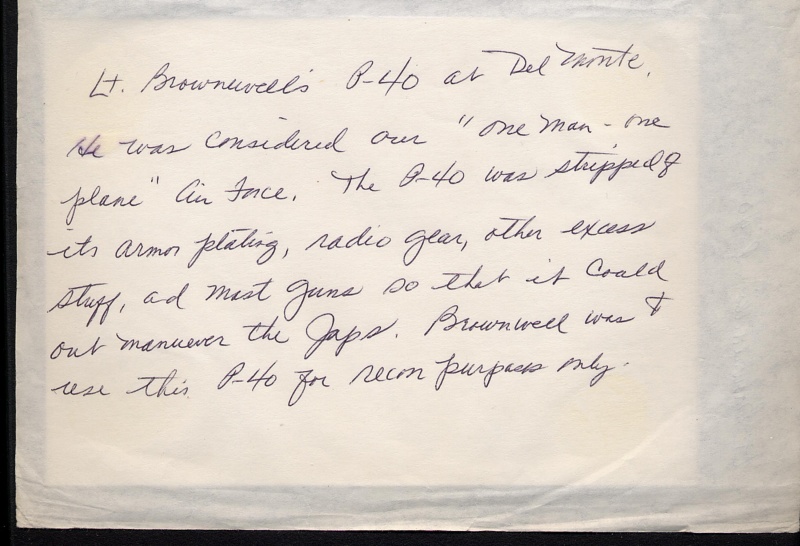 Lt. Brownewell's P-40 at Del Monte.
He was considered our "one man - one
plane" Air Force. The P-40 was stripped of
its armor plating, radio gear, other excess
stuff, ad most guns so that it could
out manuever the Japs. Brownwell was to
use this P-40 for recon purposes only.